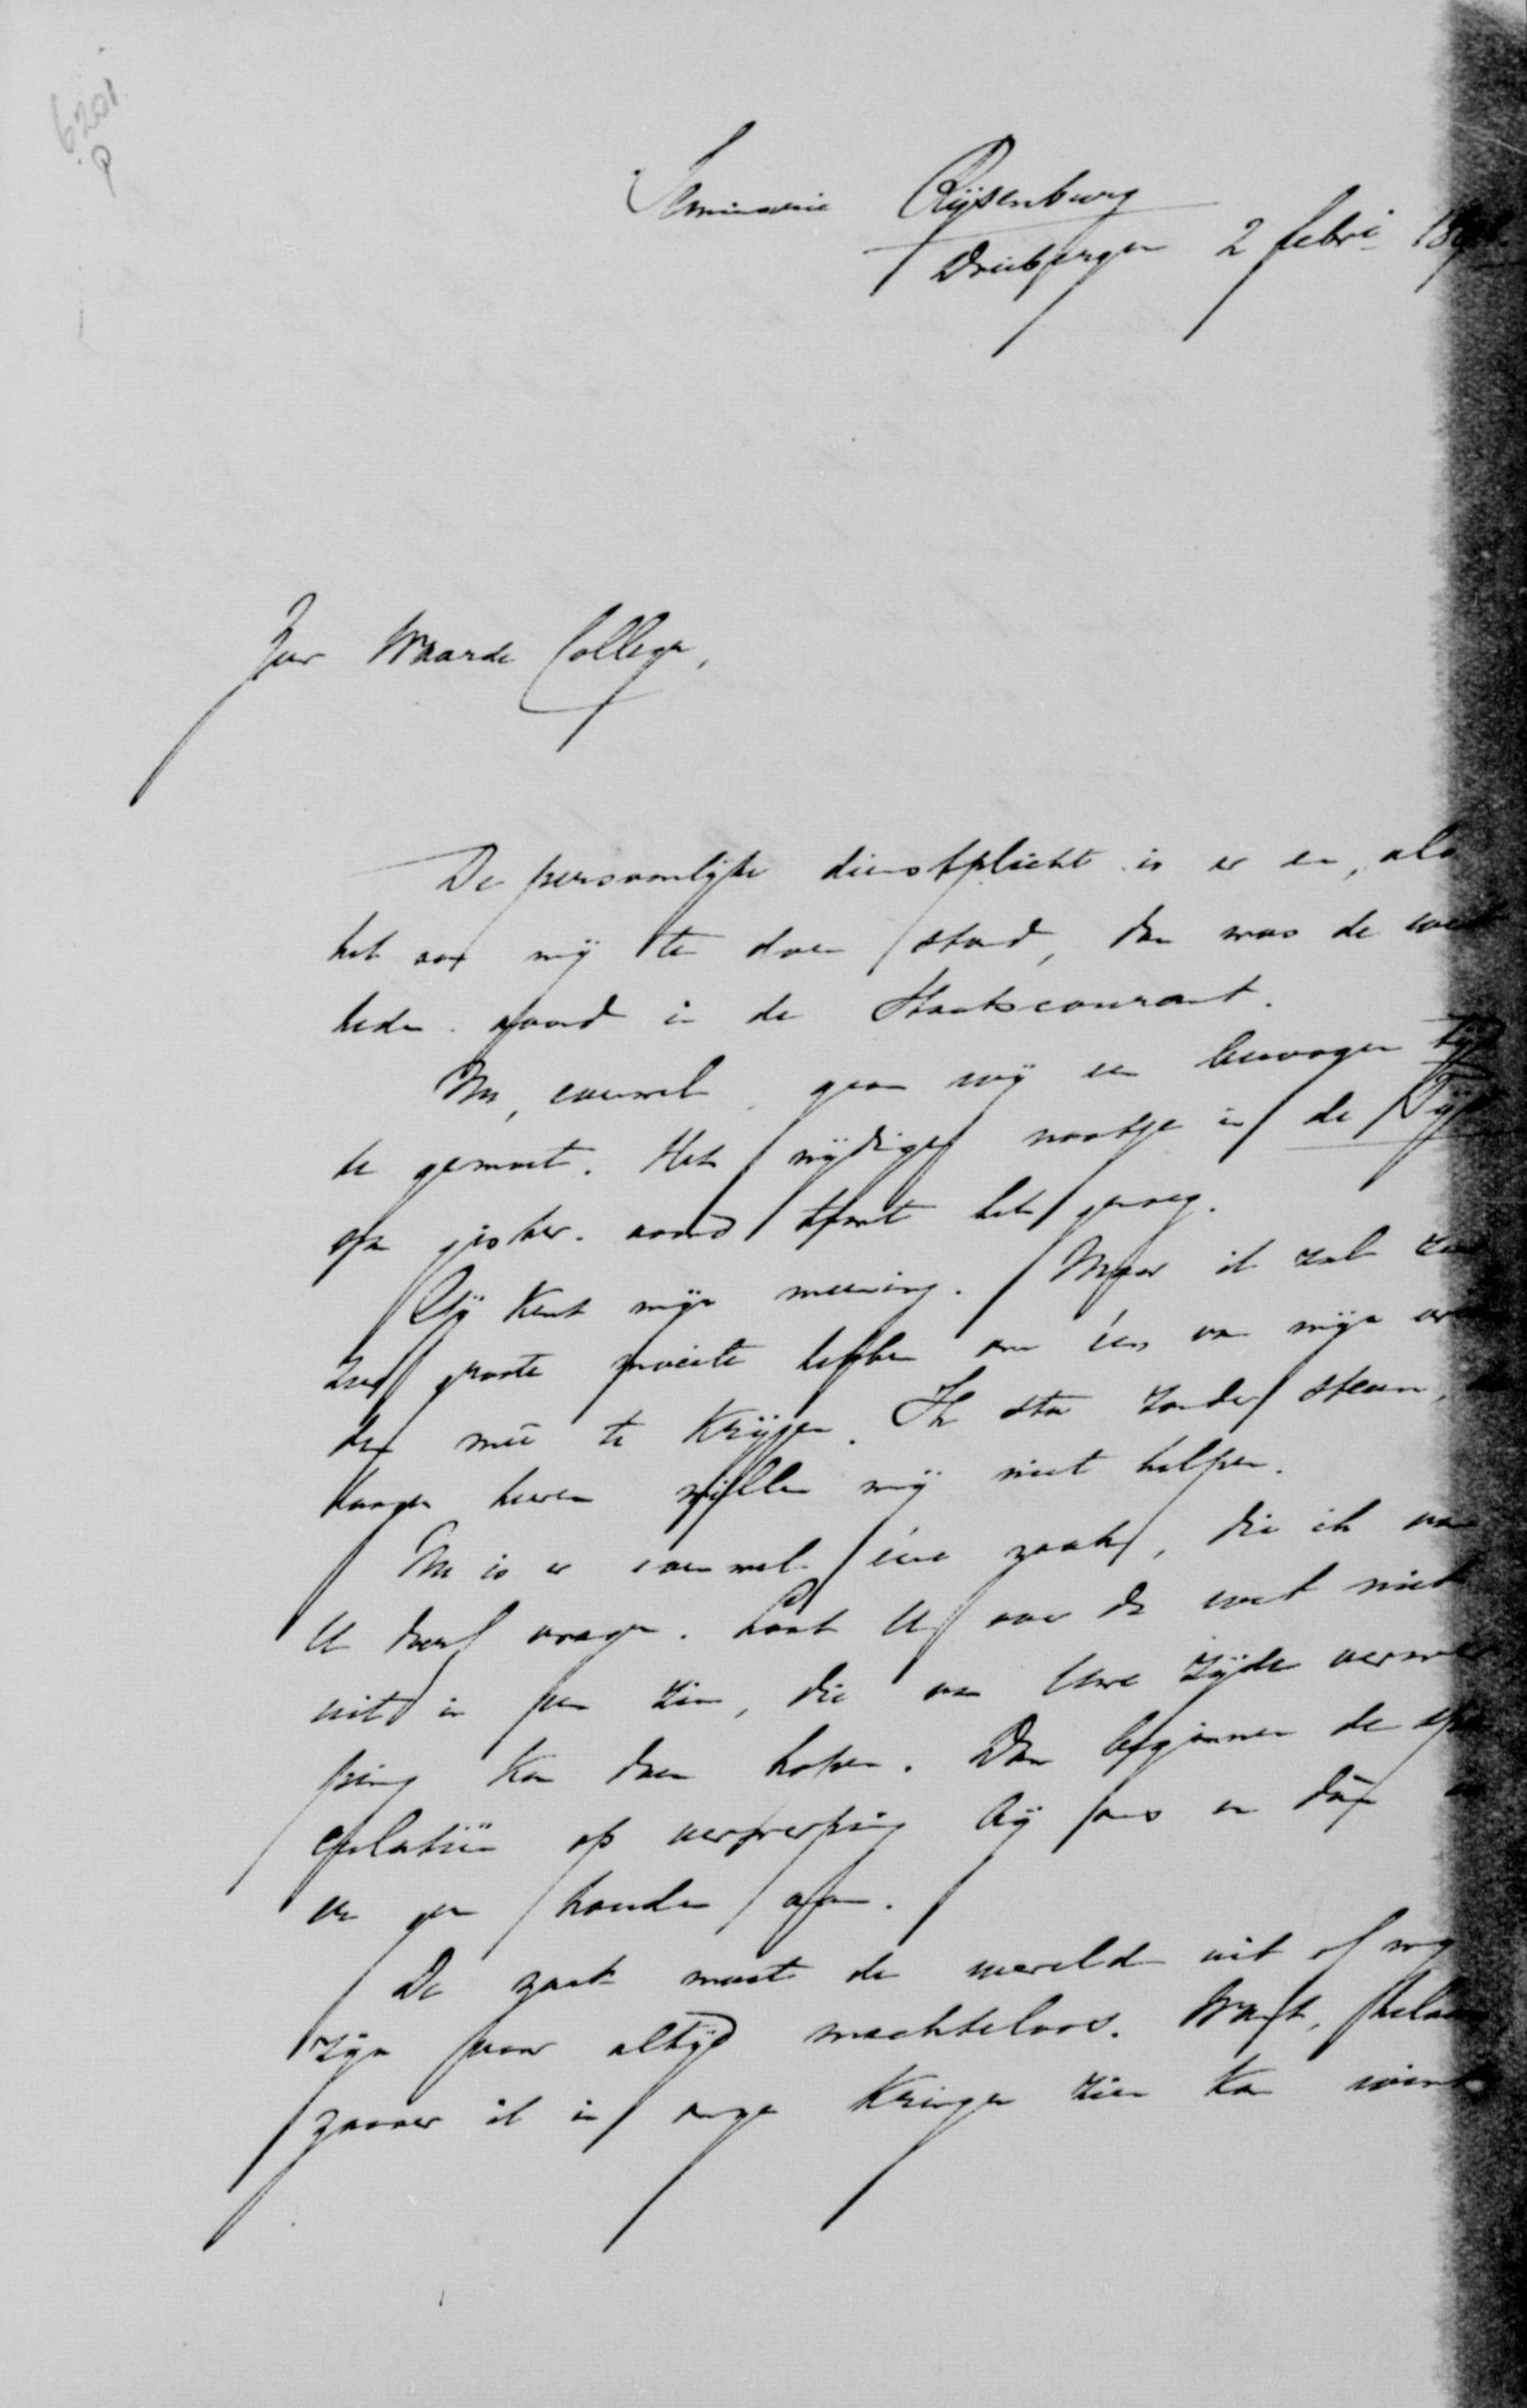 6201
P
Seminarie Rijsenburg
Driebergen 2 febri 189
Zeer Waarde Collega,
De persoonlijke dienstplicht is er en, als
het aan mij te doen stond, dan was de wet
heden avond in de Staatscourant.
Nu, evenwel, gaan wij een bewogen tijd
te gemoet. Het nijdige nootje in de Tijd
van gister avond toont het genoeg.
Gij kent mijn meening. Maar ik zal
zeer groote moeite hebben om één van mijn
den meê te krijgen. Ik sta zonder steun,
heeren willen mij niet helpen.
Nu is er evenwel ééne zaak, die ik van
U durf vragen. Laat U over de wet niet
uit in een zin, die van Uwe zijde verwer
ping kan doen hopen. Dan beginnen de spe
culatiën op verwerping bij ons en dán
er geen houden aan.
De zaak moet de wereld uit of wij
zijn voor altijd machteloos. Want, helaas
zoover ik in onze kringen zien kan